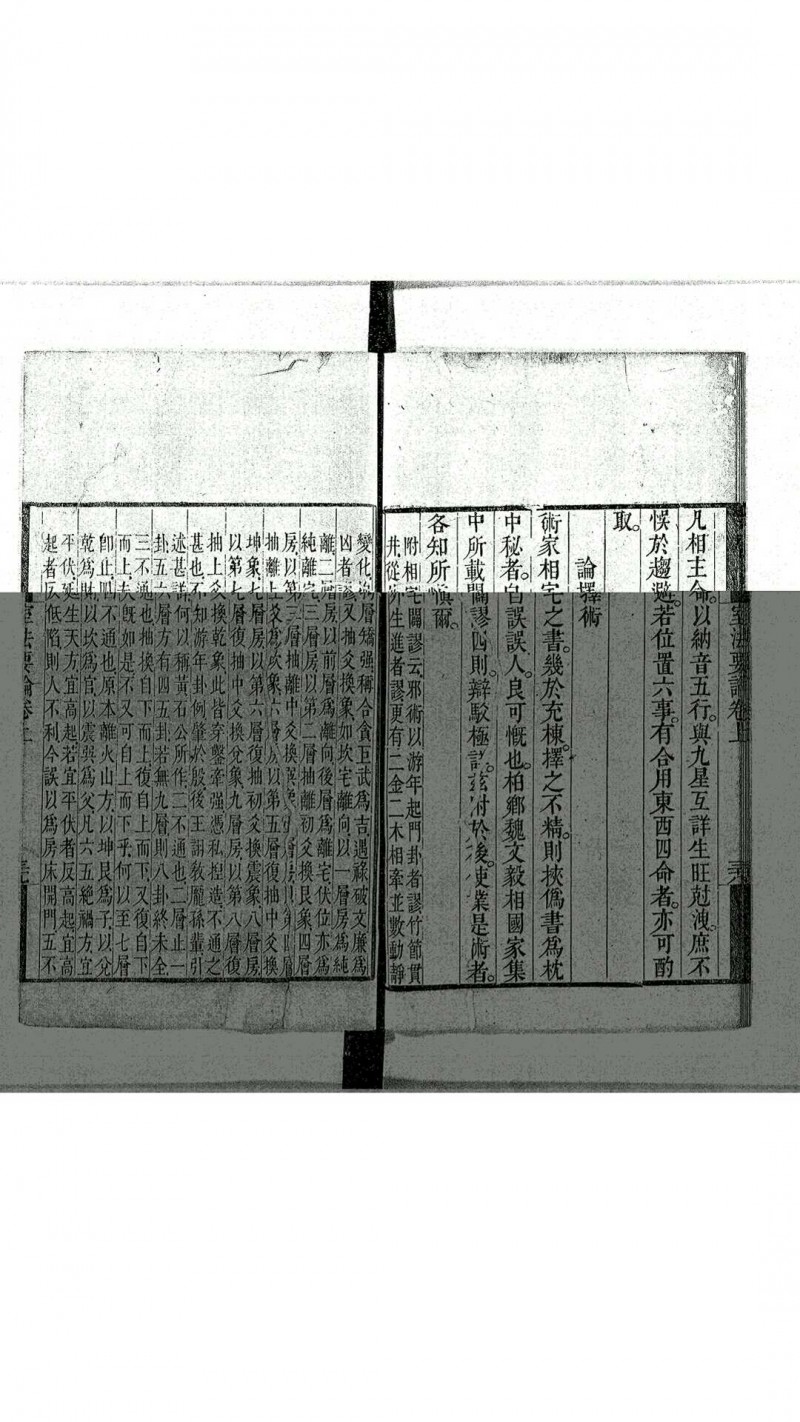 凡相主命。以納音五行。與九星互詳生旺尅洩。庶不
悞於趨避。若位置六事。有合用東西四命者。亦可酌
取。
論擇術
術家相宅之書。幾於充棟。擇之不精。則挾偽書為枕
中秘者。自誤誤人。良可慨也。柏鄉魏文毅相國家集
中所載闢謬四則。辯駁極詳。茲附於後。使業是術者。
各知所愼爾。
附相宅闢謬云。邪術以游年起門卦者謬。竹節貫
井。從旁生進者謬。更有二金二木相牽。並數動靜
變化。溈層矯强。稱合貪巨武為吉。遇祿破文廉為
凶者謬。又抽爻換象。如坎宅離向。以一層房為純
離。二層房以前層為離向。後層為離宅。伏位亦為
純離宅。三層房以第二層抽離初爻換艮象。四層
房以第三層抽離中爻換
抽離上爻為坎象。六層房以第五層復抽中爻換
坤象。七層房以第六層復抽初爻換震象。八層房
以第七層復抽中爻換兌象。九層房以第八層復
抽上爻換乾象。此皆穿鑿牽强。憑私揑造。不通之
甚也。不知游年卦例。肇於殷後王詡教龐孫輩。引
述甚詳。何以稱黃石公所作。二不通也。二層止一
卦。五六層方有四五卦。若無九層。則八卦終未全。
三不通也。抽換自下而上。復自上而下。又復自下
而上。夫旣如是。不又可自上而下乎。何以至七層
卽止。四不通也。原本離火山方。以坤艮為子。以兌
乾為財。以坎為官。以震巽為父。凡六五絕禍方宜
平伏。延生天方宜高起。若宜平伏者反高起。宜高
起者反低陷。則人不利。今誤以為房床開門。五不
室法要論卷上
室法要論卷上